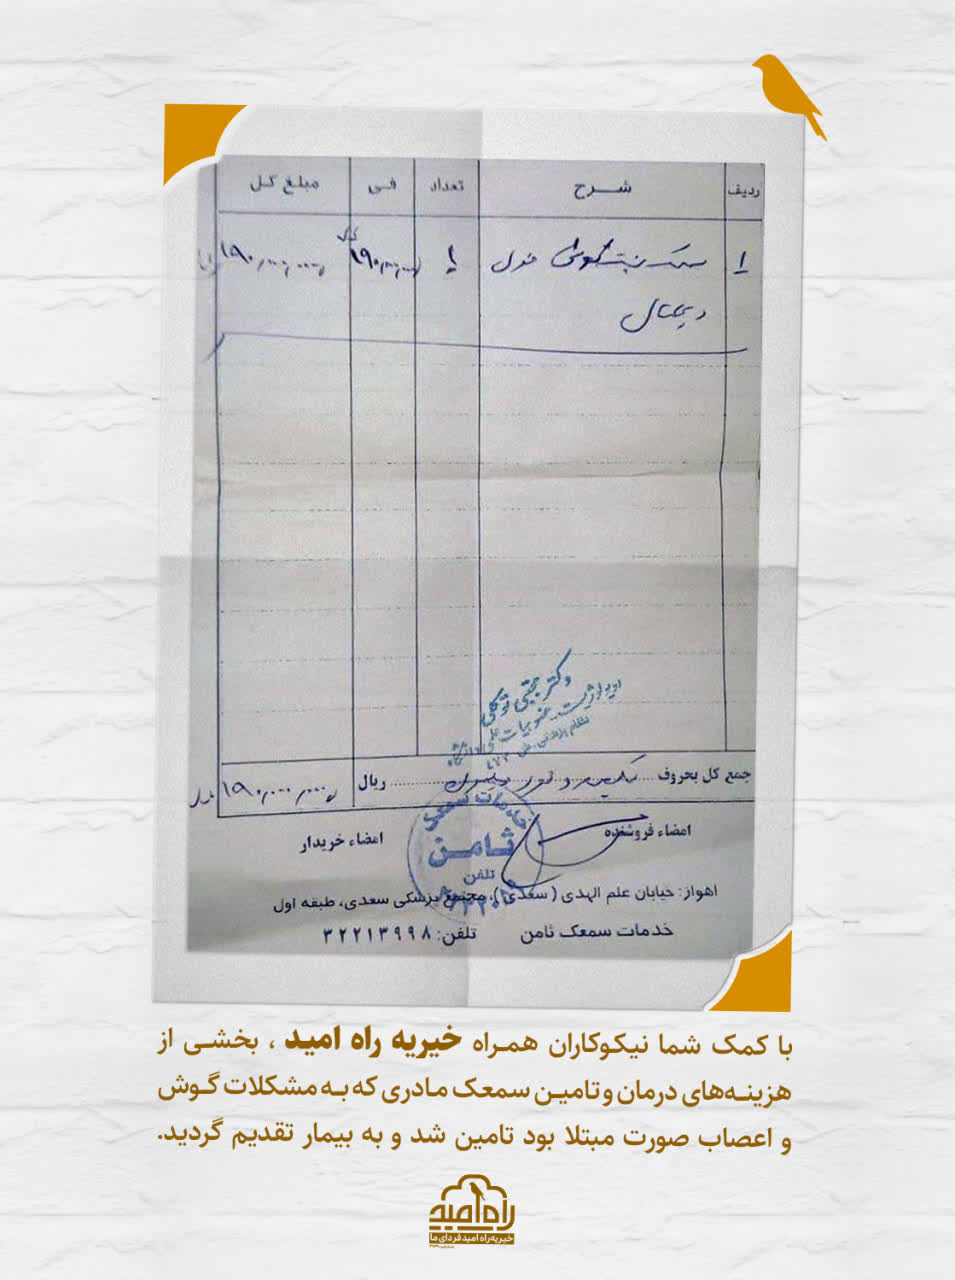 ردیف شرح تعداد فی مبلغ کل
۱ سمعک پشت گوشی فول ۱ ۱۹۰,۰۰۰,۰۰۰ ۱۹۰,۰۰۰,۰۰۰
دیجیتال
دکتر مجتبی توکلی
جمع کل بحروف ریال ۱۹۰,۰۰۰,۰۰۰
خدمات سمعک
ثامن
تلفن
امضاء فروشنده امضاء خریدار
اهواز: خیابان علم الهدی ( سعدی )، مجتمع پزشکی سعدی، طبقه اول
خدمات سمعک ثامن تلفن: ۳۲۲۱۳۹۹۸
با کمک شما نیکوکاران همراه خیریه راه امید ، بخشی از
هزینه‌های درمان و تامین سمعک مادری که به مشکلات گوش
و اعصاب صورت مبتلا بود تامین شد و به بیمار تقدیم گردید.
راه امید
خیریه راه امید فردای ما